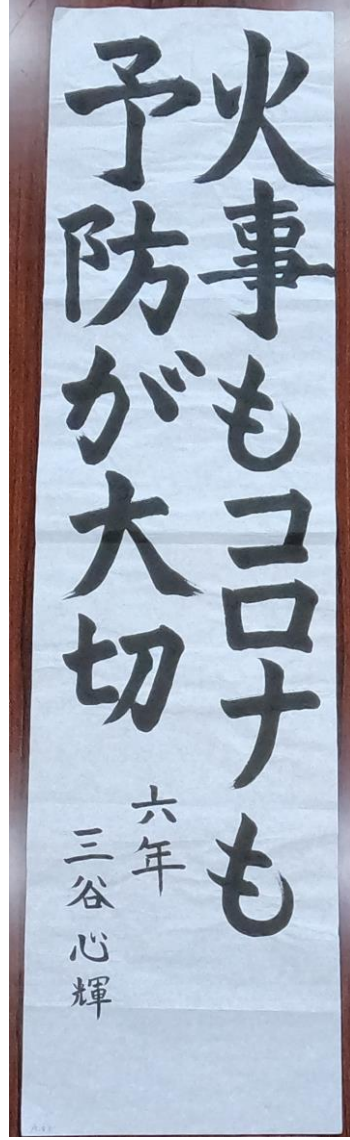 火事もコロナも
予防が大切
六年
三谷心輝